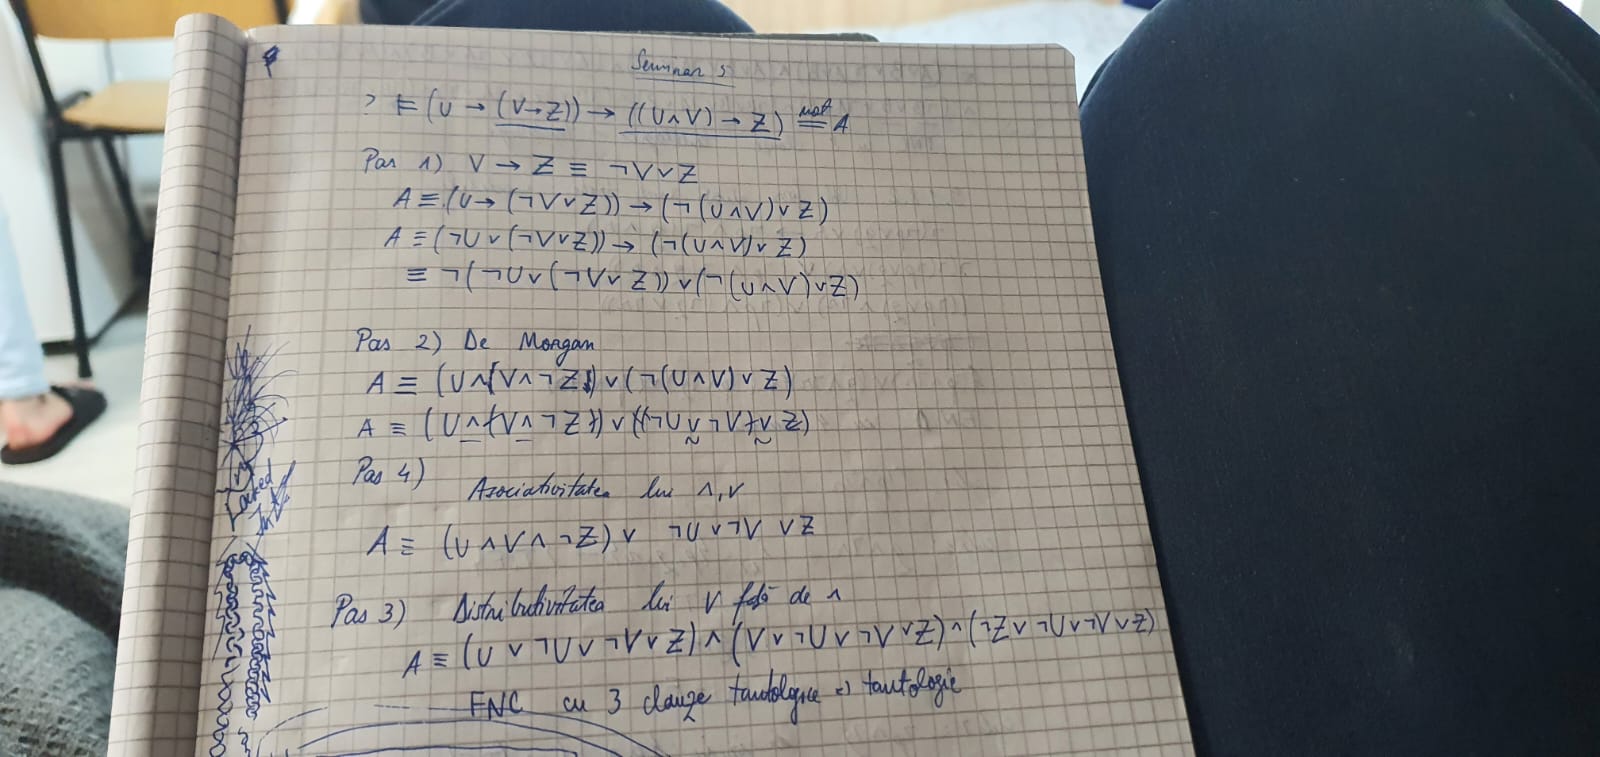 Seminar 5
? ⊨ (U → (V→Z)) → ((U∧V) → Z) not= A
Pas 1) V → Z ≡ ¬V∨Z
A ≡ (U → (¬V∨Z)) → (¬(U∧V)∨Z)
A ≡ (¬U∨(¬V∨Z)) → (¬(U∧V)∨Z)
≡ ¬(¬U∨(¬V∨Z)) ∨(¬(U∧V)∨Z)
Pas 2) De Morgan
A ≡ (U∧(V∧¬Z)) ∨ (¬(U∧V)∨Z)
A ≡ (U∧(V∧¬Z)) ∨ ((¬U∨¬V)∨Z)
Pas 4) Asociativitatea lui ∧,∨
A ≡ (U∧V∧¬Z)∨ ¬U∨¬V ∨Z
Locked
Pas 3) Distributivitatea lui ∨ față de ∧
A ≡ (U∨¬U∨¬V∨Z) ∧ (V∨¬U∨¬V∨Z) ∧ (¬Z∨¬U∨¬V∨Z)
FNC cu 3 clauze tautologice => tautologie